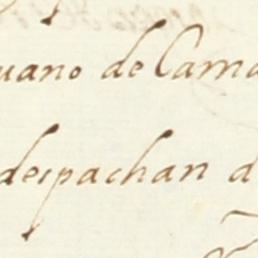 uano de Cama
despachan d